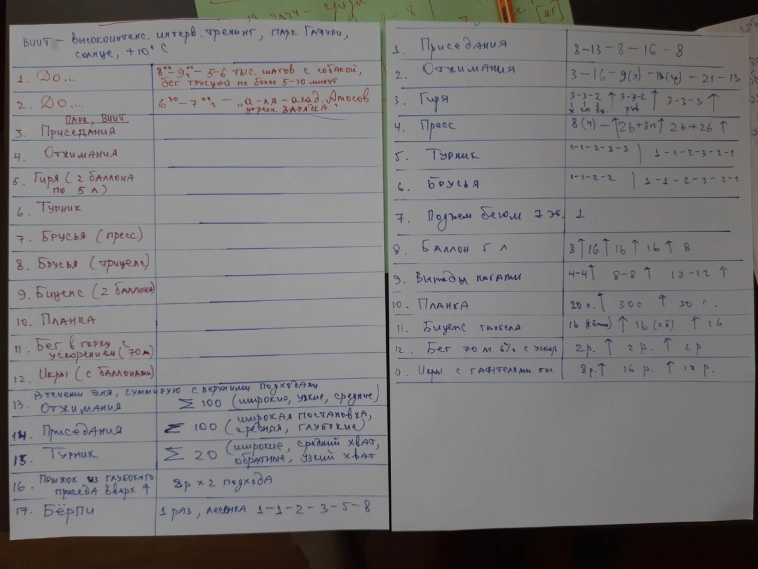 ВИИТ - высокоинтенс. интерв. тренинг, парк Гафури,
солнце, +10° С
1. До... 8⁰⁰-9⁰⁰ - 5-6 тыс. шагов с собакой,
бег трусцой не более 5-10 минут
2. До... 6³⁰-7⁰⁰ - „а-ля - акад. Амосов
ЗАРЯДКА"
ПАРК, ВИИТ
3. Приседания
4. Отжимания
5. Гиря (2 баллона
по 5 л)
6. Турник
7. Брусья (пресс)
8. Брусья (трицепс)
9. Бицепс (2 баллона)
10. Планка
11. Бег в горку с
ускорением (70м)
12. Икры (с баллонами)
В течении дня, суммирую с верхними подходами
13. Отжимания Σ 100 (широкие, узкие, средние)
14. Приседания Σ 100 (широкая постановка,
средняя, глубокие)
15. Турник Σ 20 (широкие, средний хват,
обратные, узкий хват
16. Прыжок из глубокого
приседа вверх ↑ 8р х 2 подхода
17. Бёрпи 1 раз, лесенка 1-1-2-3-5-8
1. Приседания 8-13-8-16-8
2. Отжимания 3-16-9(у) - 21-13
3. Гиря 3-3-2 ↑ 3-3-2 ↑ 3-3-3 ↑
4. Пресс 8(4) - ↑ 2б+3п ↑ 2б+2б ↑
5. Турник 1-1-2-3-3 | 1-1-2-3-2-1
6. Брусья 1-1-2-2 | 1-1-2-3-2-1
7. Подъем бегом 7 эт. 1
8. Баллон 5 л 8 ↑ 16 ↑ 16 ↑ 16 ↑ 8
9. Выпады ногами 4-4 ↑ 8-8 ↑ 12-12 ↑
10. Планка 20 с. ↑ 30 с ↑ 30 с.
11. Бицепс гантела 16 ↑ 16 ↑ 16
12. Бег 70 м с ускор. 2 р. ↑ 2 р. ↑ 2 р
Икры с гантелями 8 р. ↑ 16 р. ↑ 12 р.